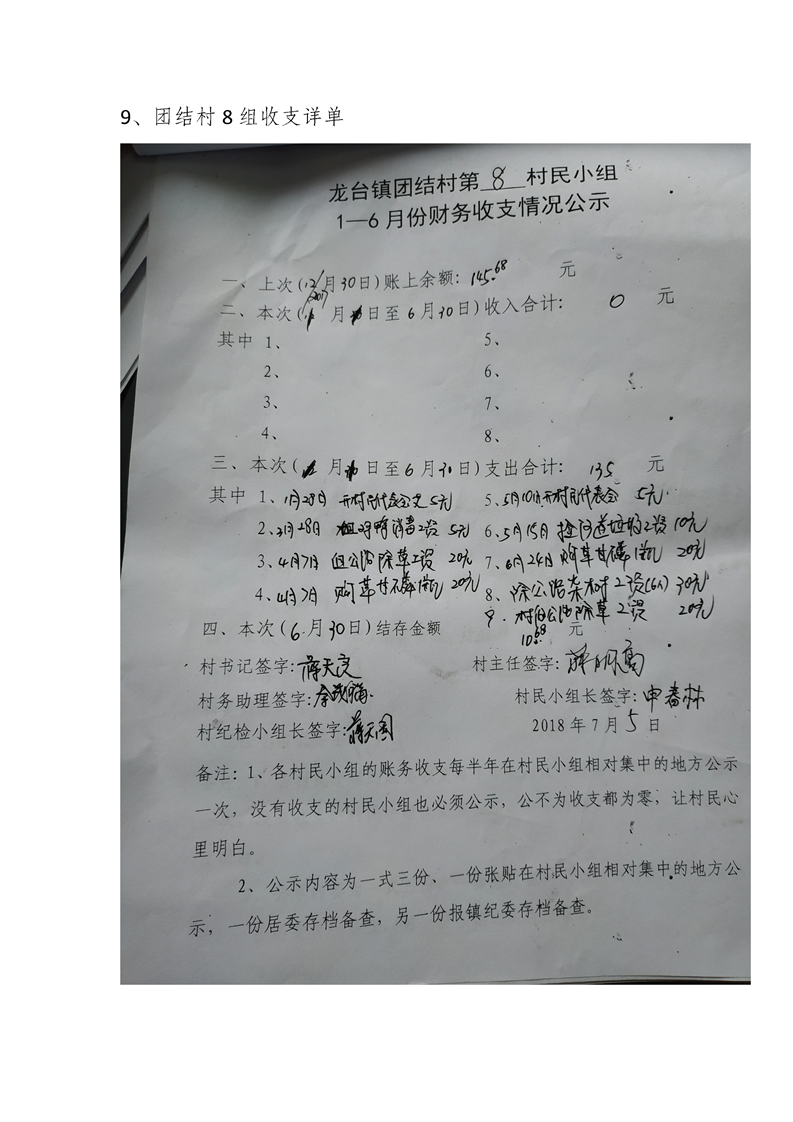 9、团结村 8 组收支详单
龙台镇团结村第 8 村民小组
1—6 月份财务收支情况公示
一、上次(12月30日)账上余额: 145.68 元
2017
二、本次( 月 日至 6月30日)收入合计: 0 元
其中 1、 5、
2、 6、
3、 7、
4、 8、
三、本次( 月 日至 6月30日)支出合计: 135 元
其中 1、1月28日 开村民代表会 5元 5、5月10日开村民代表会 5元
2、3月28日 消毒工资 5元 6、5月15日 捡河道垃圾工资 10元
3、4月7日 组公路除草工资 20元 7、6月24日 购草甘磷 20元
4、4月7日 购草甘磷 20元 8、除公路杂树工资(6人) 30元
9. 村组公路除草工资 20元
四、本次(6月30日)结存金额 10.68 元
村书记签字: 蒋天 村主任签字:
村务助理签字: 村民小组长签字: 申春林
村纪检小组长签字: 2018 年 7 月 5 日
备注:1、各村民小组的账务收支每半年在村民小组相对集中的地方公示
一次，没有收支的村民小组也必须公示，公不为收支都为零，让村民心
里明白。
2、公示内容为一式三份、一份张贴在村民小组相对集中的地方公
示，一份居委存档备查，另一份报镇纪委存档备查。